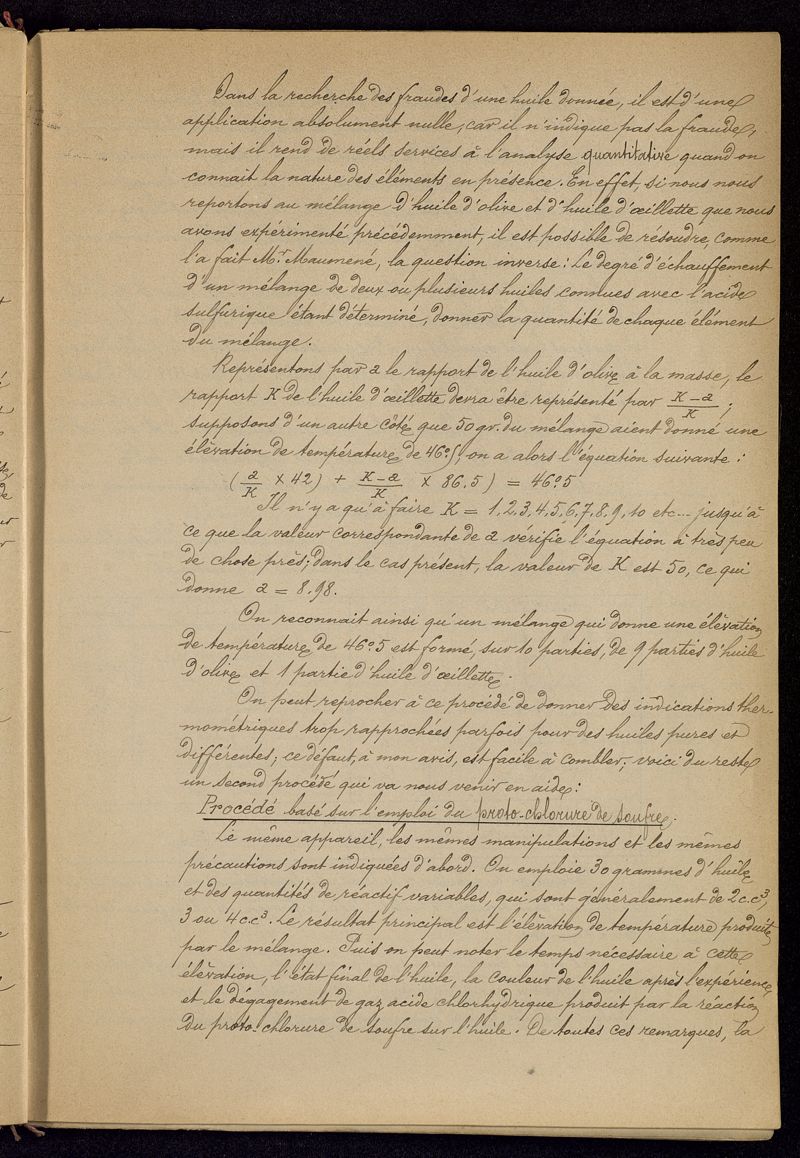 Dans la recherche des fraudes d'une huile donnée, il est d'une
application absolument nulle, car il n'indique pas la fraude,
mais il rend de réels services à l'analyse quantitative quand on
connait la nature des éléments en présence. En effet, si nous nous
reportons au mélange d'huile d'olive et d'huile d'œillette que nous
avons expérimenté précédemment, il est possible de résoudre, comme
l'a fait Mr. Maumené, la question inverse: Le degré d'échauffement
d'un mélange de deux ou plusieurs huiles connues avec l'acide
sulfurique étant déterminé, donner la quantité de chaque élément
du mélange.
Représentons par a le rapport de l'huile d'olive à la masse, le
rapport K de l'huile d'œillette devra être représenté par K-a/K;
supposons d'un autre côté que 50 gr. du mélange aient donné une
élévation de température de 46°5, on a alors l'équation suivante:
(a/K × 42) + K-a/K × 86.5) = 46°5
Il n'y a qu'à faire K = 1,2,3,4,5,6,7,8,9,10 etc... jusqu'à
ce que la valeur correspondante de a vérifie l'équation à très peu
de chose près; dans le cas présent, la valeur de K est 50, ce qui
donne a = 8.98.
On reconnait ainsi qu'un mélange qui donne une élévation
de température de 46°5 est formé, sur 10 parties, de 9 parties d'huile
d'olive et 1 partie d'huile d'œillette.
On peut reprocher à ce procédé de donner des indications ther-
mométriques trop rapprochées parfois pour des huiles pures et
différentes; ce défaut, à mon avis, est facile à combler; voici du reste
un second procédé qui va nous venir en aide:
Procédé basé sur l'emploi du proto-chlorure de soufre.
Le même appareil, les mêmes manipulations et les mêmes
précautions sont indiquées d'abord. On emploie 30 grammes d'huile
et des quantités de réactif variables, qui sont généralement de 2 c.c³,
3 ou 4 c.c³. Le résultat principal est l'élévation de température produite
par le mélange. Puis on peut noter le temps nécessaire à cette
élévation, l'état final de l'huile, la couleur de l'huile après l'expérience
et le dégagement de gaz acide chlorhydrique produit par la réaction
du proto-chlorure de soufre sur l'huile. De toutes ces remarques, la